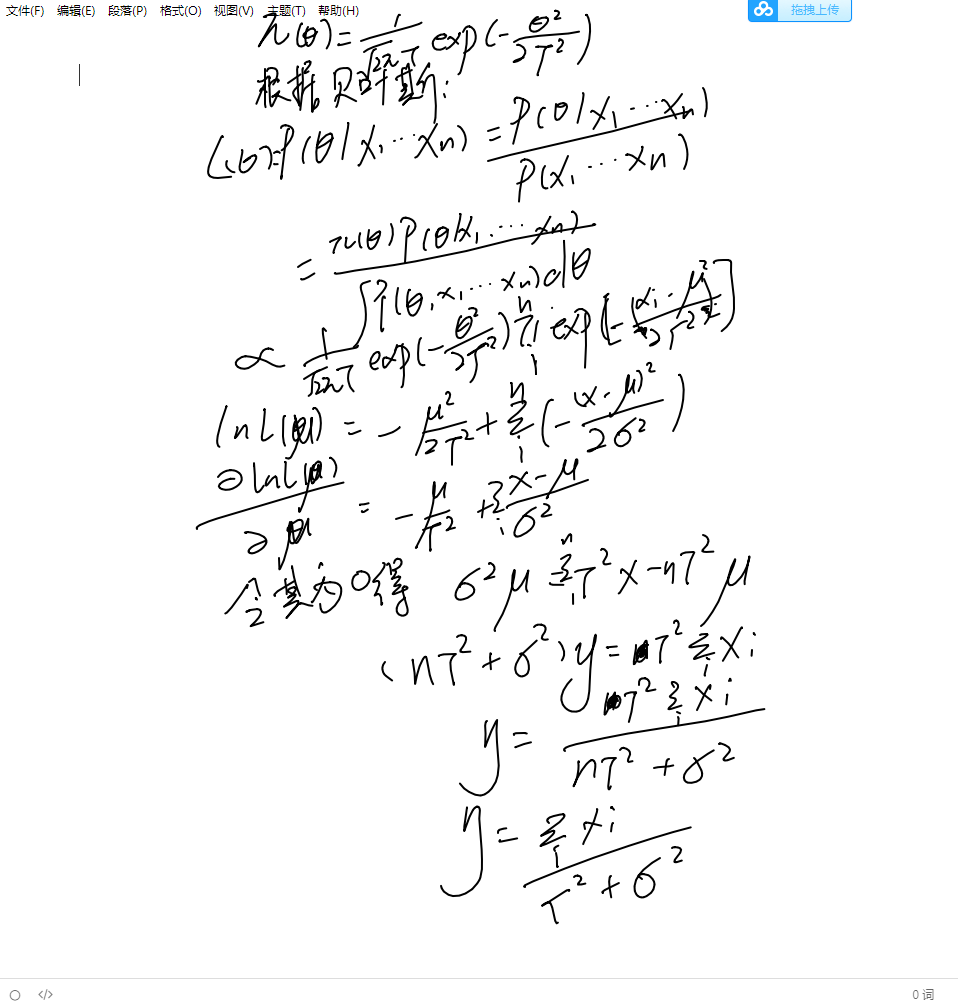 文件(F) 编辑(E) 段落(P) 格式(O) 视图(V) 主题(T) 帮助(H) 拖拽上传
π(θ)=1/(√2π τ) exp(-θ²/2τ²)
根据贝叶斯:
L(θ)=P(θ|x₁…xₙ)=P(θ|x₁…xₙ)/P(x₁…xₙ)
=π(θ)P(θ|x₁…xₙ)/∫P(θ,x₁…xₙ)dθ
∝ 1/(√2π τ) exp(-θ²/2τ²) ∏ⁿᵢ exp[-(xᵢ-μ)²/2τ²]
ln L(μ) = -μ²/2τ² + Σⁿᵢ(-(x-μ)²/2σ²)
∂lnL(μ)/∂μ = -μ/τ² + Σᵢ (x-μ)/σ²
令其为0得 σ²μ = Σⁿᵢ τ²x - nτ²μ
(nτ²+σ²)y = τ² Σᵢ xi
y = τ² Σᵢ xi/(nτ²+σ²)
y = Σᵢ xi/(τ²+σ²)
</> 0 词